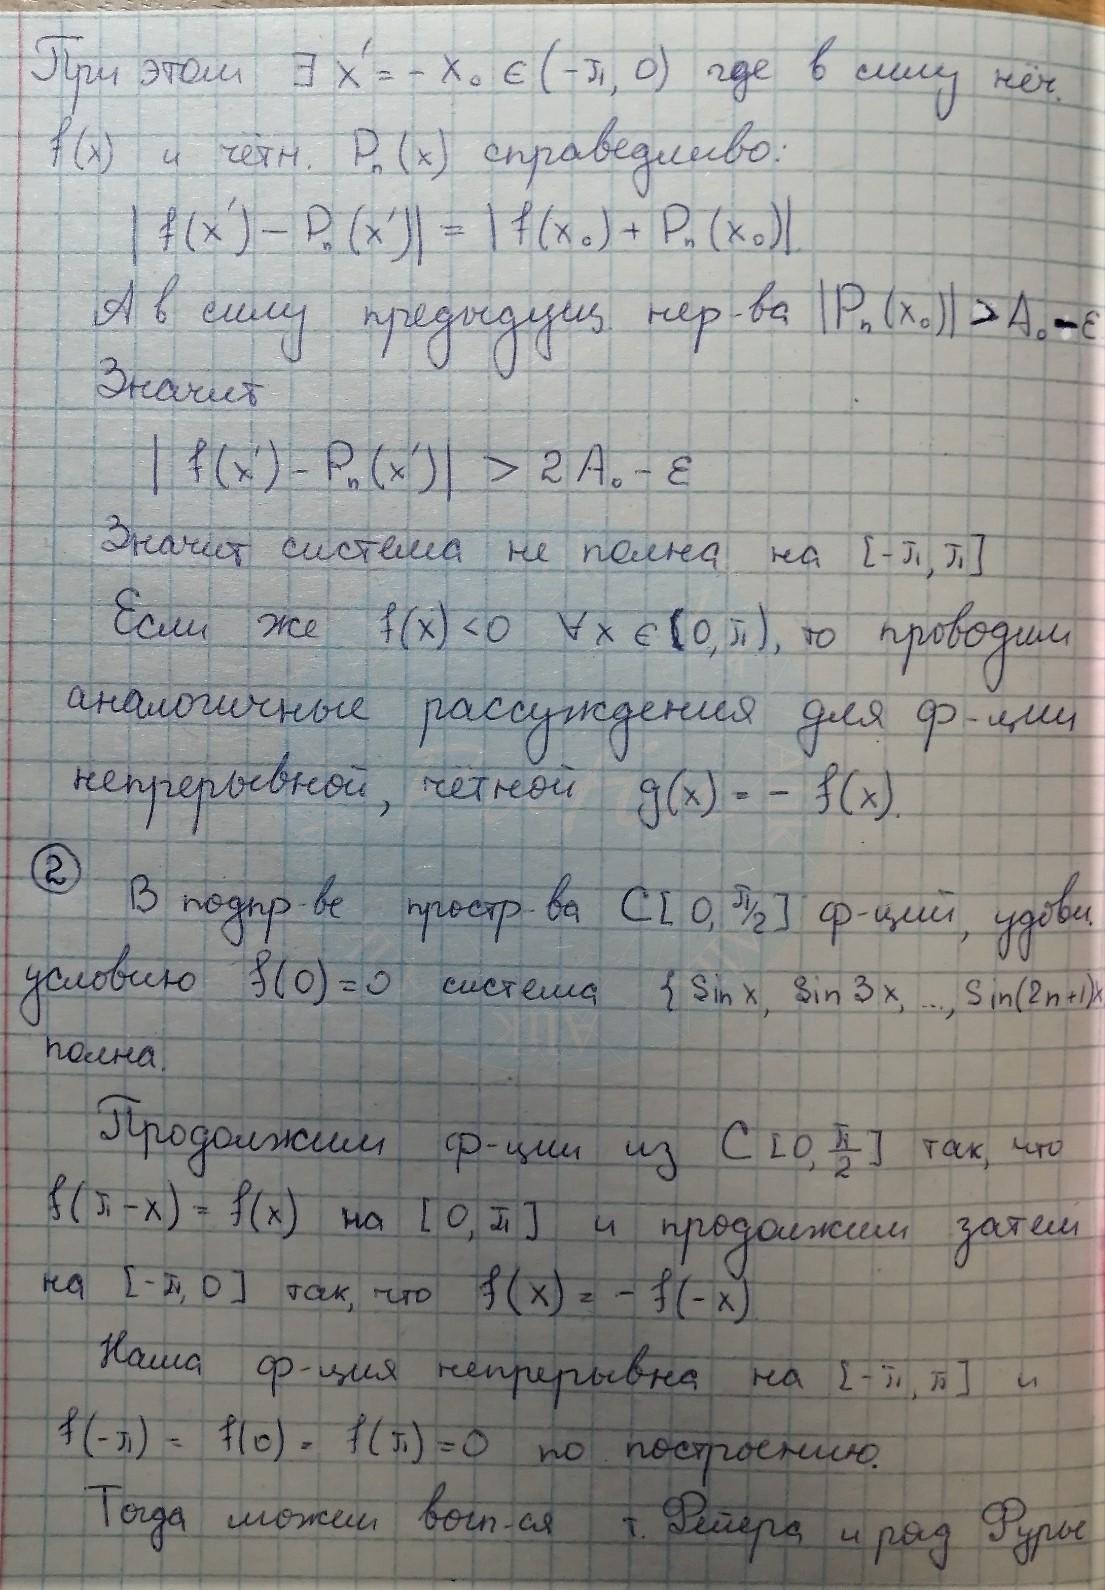 При этом ∃ x' = - x₀ ∈ (-π, 0) где в силу неч.
f(x) и чётн. Pₙ(x) справедливо:
|f(x') - Pₙ(x')| = |f(x₀) + Pₙ(x₀)|.
А в силу предыдущ. нер-ва |Pₙ(x₀)| > A₀ - ε
Значит
|f(x') - Pₙ(x')| > 2A₀ - ε
Значит система не полна на [-π, π]
Если же f(x) < 0 ∀x ∈ (0, π), то проводим
аналогичные рассуждения для ф-ции
непрерывной, чётной g(x) = - f(x).
② В подпр-ве простр-ва C[0, π/2] ф-ций, удовл.
условию f(0) = 0 система {Sin x, Sin 3x, ..., Sin(2n+1)x
полна.
Продолжим ф-ции из C[0, π/2] так, что
f(π-x) = f(x) на [0, π] и продолжим затем
на [-π, 0] так, что f(x) = - f(-x)
Наша ф-ция непрерывна на [-π, π] и
f(-π) = f(0) = f(π) = 0 по построению.
Тогда можем восп-ся т. Фейера и ряд Фурье